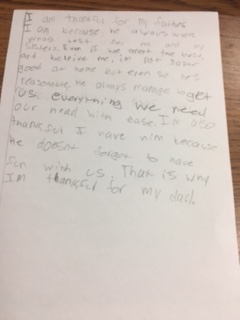 I am thankful for my father
I am because he always works
really hard for me and my
sisters. Even if we arent the best,
and believe me, im not super
good at home but even so he's
reasonable he always manages to get
us everything we need
our need with ease. Im also
thankful I have him because
he doesnt forget to have
fun with us. That is why
Im thankful for my dad.